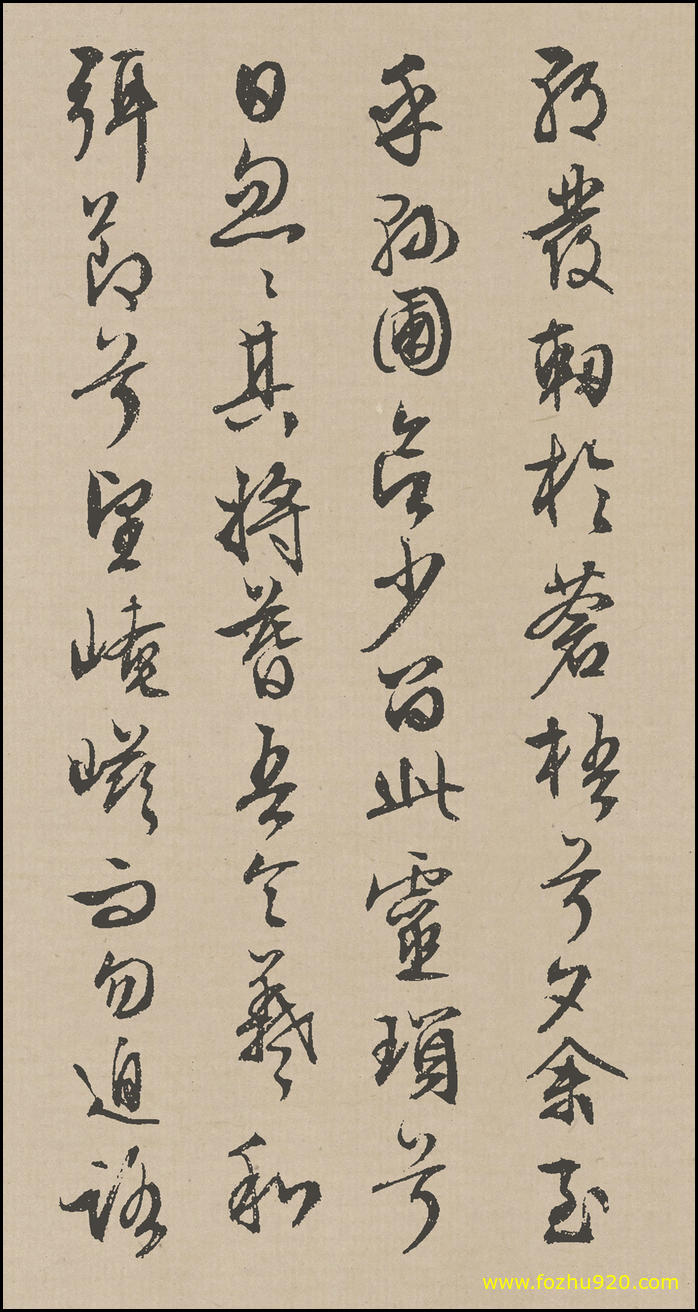 朝發軔於蒼梧兮夕余至
乎縣圃欲少留此靈瑣兮
日忽〻其將暮吾令羲和
弭節兮望崦嵫而勿迫路
www.fozhu920.com